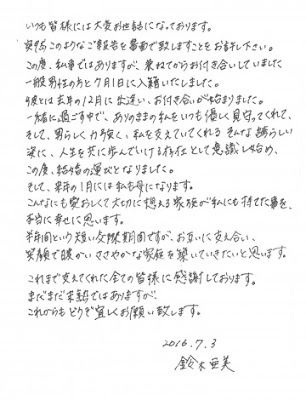 いつも皆様には大変お世話になっております。
突然このようなご報告を書面で致しますことをお許し下さい。
この度、私事ではありますが、兼ねてからお付き合いしていました
一般男性の方と7月1日に入籍いたしました。
彼とは去年の12月に出逢い、お付き合いが始まりました。
一緒に過ごす中で、ありのままの私をいつも優しく見守ってくれて、
そして、男らしく力強く、私を支えてくれる そんな誇らしい
姿に、人生を共に歩んでいける存在として意識し始め、
この度、結婚の運びとなりました。
そして、来年の1月には私も母になります。
こんなにも愛おしくて大切に想える家族が私にも持てた事を、
本当に幸せに思います。
半年間という短い交際期間ですが、お互いに支え合い、
笑顔で暖かいささやかな家庭を築いていきたいと思います。
これまで支えてくれた全ての皆様に感謝しております。
まだまだ未熟ではありますが、
これからもどうぞ宜しくお願い致します。
2016.7.3
鈴木亜美